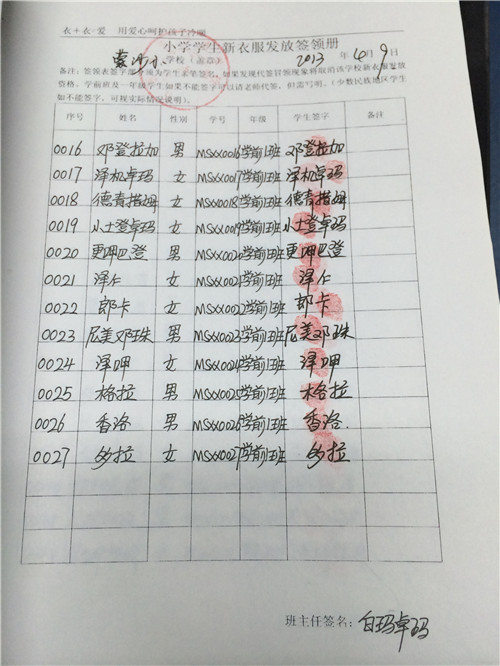 衣+衣·爱 用爱心呵护孩子冷暖
小学学生新衣服发放签领册
学校(盖章) 2013 年 4月 9 日
备注:签领表签字部 须为学生亲笔签名,如果发现代签冒领现象将取消该学校新衣服发放
资格。学前班及一年级学生如果不能签字可以请老师代签,但需写明。(少数民族地区学生
如不能签字,可视实际情况说明)。
序号 姓名 性别 学号 年级 学生签字 备注
0016 邓登拉加 男 MSXX0016 学前1班 邓登拉加
0017 泽机卓玛 女 MSXX0017 学前1班 泽机卓玛
0018 德青措姆 女 MSXX0018 学前1班 德青措姆
0019 小士登卓玛 女 MSXX0019 学前1班 小士登卓玛
0020 更呷巴登 男 MSXX0020 学前1班 更呷巴登
0021 泽仁 女 MSXX0021 学前1班 泽仁
0022 郎卡 女 MSXX0022 学前1班 郎卡
0023 尼美邓珠 男 MSXX0023 学前1班 尼美邓珠
0024 泽呷 女 MSXX0024 学前1班 泽呷
0025 格拉 男 MSXX0025 学前1班 格拉
0026 香洛 男 MSXX0026 学前1班 香洛
0027 多拉 女 MSXX0027 学前1班 多拉
班主任签名: 白玛卓玛